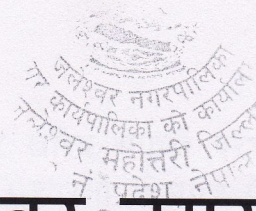 जलेश्वर नगरपालिका
नगर कार्यपालिका को कार्यालय
जलेश्वर महोत्तरी जिल्ला
नं प्रदेश नेपाल